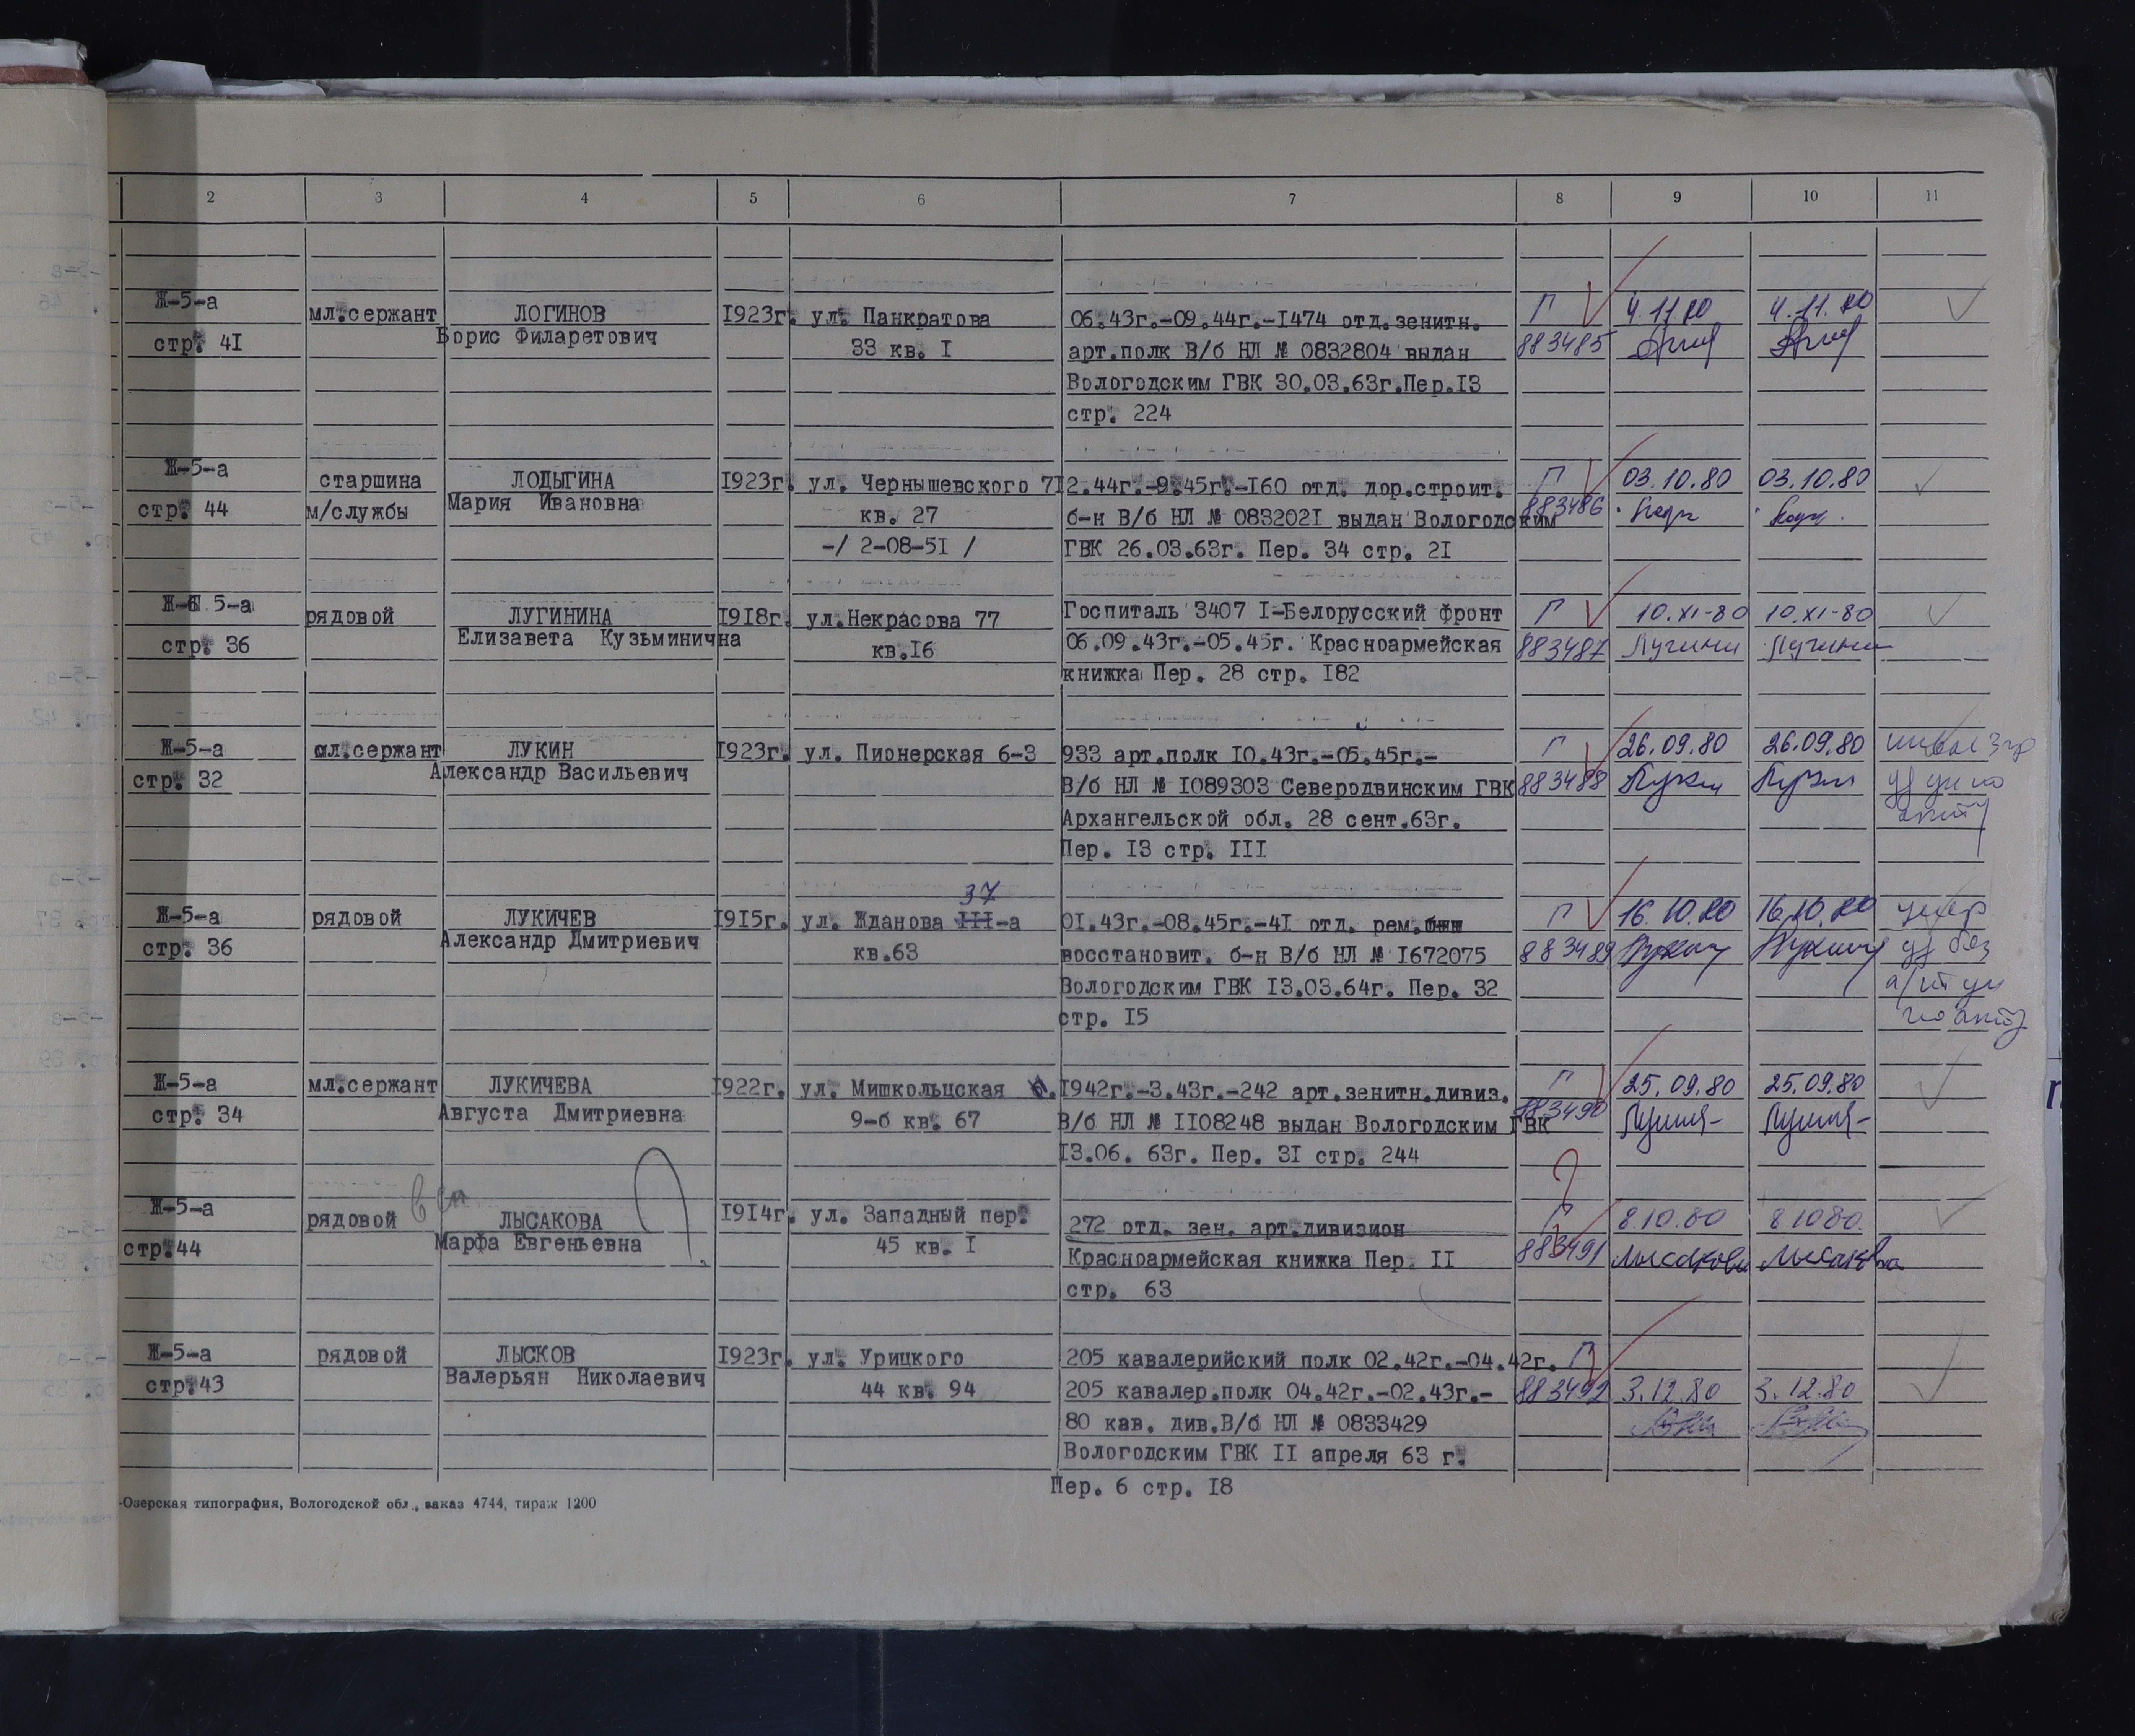 2 3 4 5 6 7 8 9 10 11
Ж-5-а
стр. 4I
мл.сержант
ЛОГИНОВ
Борис Филаретович
I923г.
ул. Панкратова
33 кв. I
06.43г.-09.44г.-I474 отд.зенитн.
арт.полк В/б НЛ № 0832804 выдан
Вологодским ГВК 30.03.63г.Пер.I3
стр. 224
Г
883485
4.11.80
4.11.80
Ж-5-а
стр. 44
старшина
м/службы
ЛОДЫГИНА
Мария Ивановна
I923г.
ул. Чернышевского 7
кв. 27
-/ 2-08-5I /
I2.44г.-9.45г.-I60 отд. дор.строит.
б-н В/б НЛ № 083202I выдан Вологодским
ГВК 26.03.63г. Пер. 34 стр. 2I
Г
883486
03.10.80
03.10.80
Ж-5-а
стр. 36
рядовой
ЛУГИНИНА
Елизавета Кузьминична
I9I8г.
ул.Некрасова 77
кв.I6
Госпиталь 3407 I-Белорусский фронт
06.09.43г.-05.45г. Красноармейская
книжка Пер. 28 стр. I82
Г
883487
10.XI-80
10.XI-80
Ж-5-а
стр. 32
мл.сержант
ЛУКИН
Александр Васильевич
I923г.
ул. Пионерская 6-3
933 арт.полк I0.43г.-05.45г.-
В/б НЛ № I089303 Северодвинским ГВК
Архангельской обл. 28 сент.63г.
Пер. I3 стр. III
Г
883488
26.09.80
26.09.80
Ж-5-а
стр. 36
рядовой
ЛУКИЧЕВ
Александр Дмитриевич
I9I5г.
37
ул. Жданова III-а
кв.63
0I.43г.-08.45г.-4I отд. рем.
восстановит. б-н В/б НЛ № I672075
Вологодским ГВК I3.03.64г. Пер. 32
стр. I5
Г
883489
16.10.80
16.10.80
Ж-5-а
стр. 34
мл.сержант
ЛУКИЧЕВА
Августа Дмитриевна
I922г.
ул. Мишкольцская
9-б кв. 67
I942г.-3.43г.-242 арт.зенитн.дивиз.
В/б НЛ № II08248 выдан Вологодским ГВК
I3.06. 63г. Пер. 3I стр. 244
Г
883490
25.09.80
25.09.80
Ж-5-а
стр.44
рядовой
ЛЫСАКОВА
Марфа Евгеньевна
I9I4г.
ул. Западный пер.
45 кв. I
272 отд. зен. арт.дивизион
Красноармейская книжка Пер. II
стр. 63
?
Г
883491
8.10.80
8.10.80.
Лысакова
Лысакова
Ж-5-а
стр.43
рядовой
ЛЫСКОВ
Валерьян Николаевич
I923г.
ул. Урицкого
44 кв. 94
205 кавалерийский полк 02.42г.-04.42г.
205 кавалер.полк 04.42г.-02.43г.-
80 кав. див.В/б НЛ № 0833429
Вологодским ГВК II апреля 63 г.
Пер. 6 стр. I8
Г
883492
3.12.80
3.12.80
-Озерская типография, Вологодской обл., заказ 4744, тираж 1200